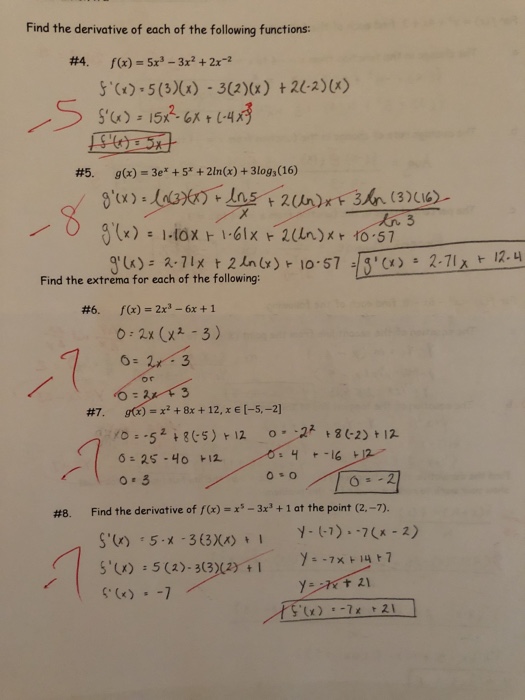 Find the derivative of each of the following functions:
#4. f(x) = 5x³ – 3x² + 2x⁻²
f'(x) = 5(3)(x) - 3(2)(x) + 2(-2)(x)
-5
f'(x) = 15x² - 6x + (-4x³)
f'(x) = 5x
#5. g(x) = 3eˣ + 5ˣ + 2ln(x) + 3log₃(16)
g'(x) = ln(3)(x) + ln5/x + 2(ln)x + 3ln(3)(16)/ln 3
-8
g'(x) = 1.10x + 1.61x + 2(ln)x + 10.57
g'(x) = 2.71x + 2ln(x) + 10.57 = g'(x) = 2.71x + 12.4
Find the extrema for each of the following:
#6. f(x) = 2x³ – 6x + 1
0 = 2x(x² - 3)
-7
0 = 2x - 3
or
0 = 2x + 3
#7. g(x) = x² + 8x + 12, x ∈ [–5, –2]
-7
0 = -5² + 8(-5) + 12 0 = -2² + 8(-2) + 12
0 = 25 - 40 + 12 0 = 4 + -16 + 12
0 = 3 0 = 0 0 = -2
#8. Find the derivative of f(x) = x⁵ – 3x³ + 1 at the point (2, –7).
f'(x) = 5·x - 3(3)(x) + 1 y - (-7) = -7(x - 2)
-7
f'(x) = 5(2) - 3(3)(2) + 1 y = -7x + 14 + 7
f'(x) = -7 y = -7x + 21
f'(x) = -7x + 21